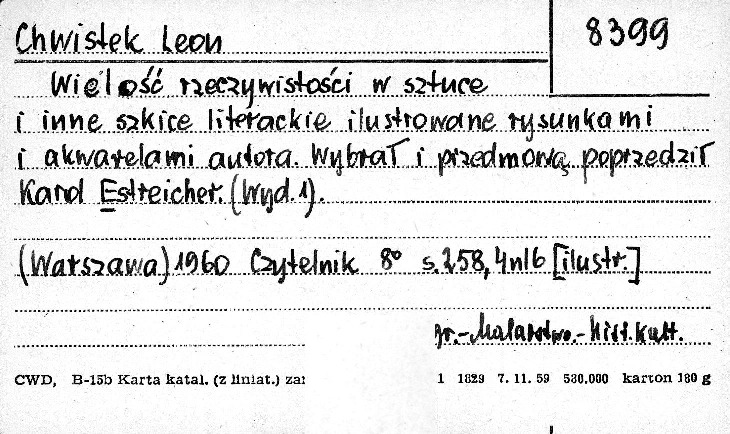 Chwistek Leon 8399
Wielość rzeczywistości w sztuce
i inne szkice literackie ilustrowane rysunkami
i akwarelami autora. Wybrał i przedmową poprzedził
Karol Estreicher. (Wyd. 1).
(Warszawa) 1960 Czytelnik 8° s. 258, 4nlb [ilustr.]
-Malarstwo.-Hist. Kult.
CWD, B-15b Karta katal. (z liniat.) za 1 1829 7. 11. 59 530.000 karton 180 g